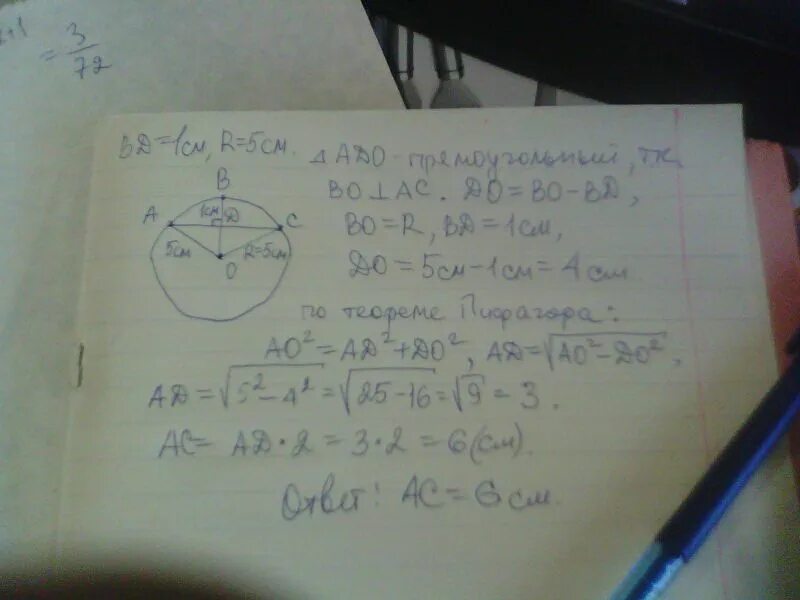 = 3/72
BD=1см, R=5см.
△ADO-прямоугольный, тк.
BO⊥AC. DO=BO-BD,
BO=R, BD=1см,
DO=5см-1см=4см.
B
1см D
A
C
5см
R=5см
O
по теореме Пифагора:
AO²=AD²+DO², AD=√AO²-DO²,
AD=√5²-4²=√25-16=√9=3.
AC= AD·2=3·2=6(см).
Ответ: AC=6см.